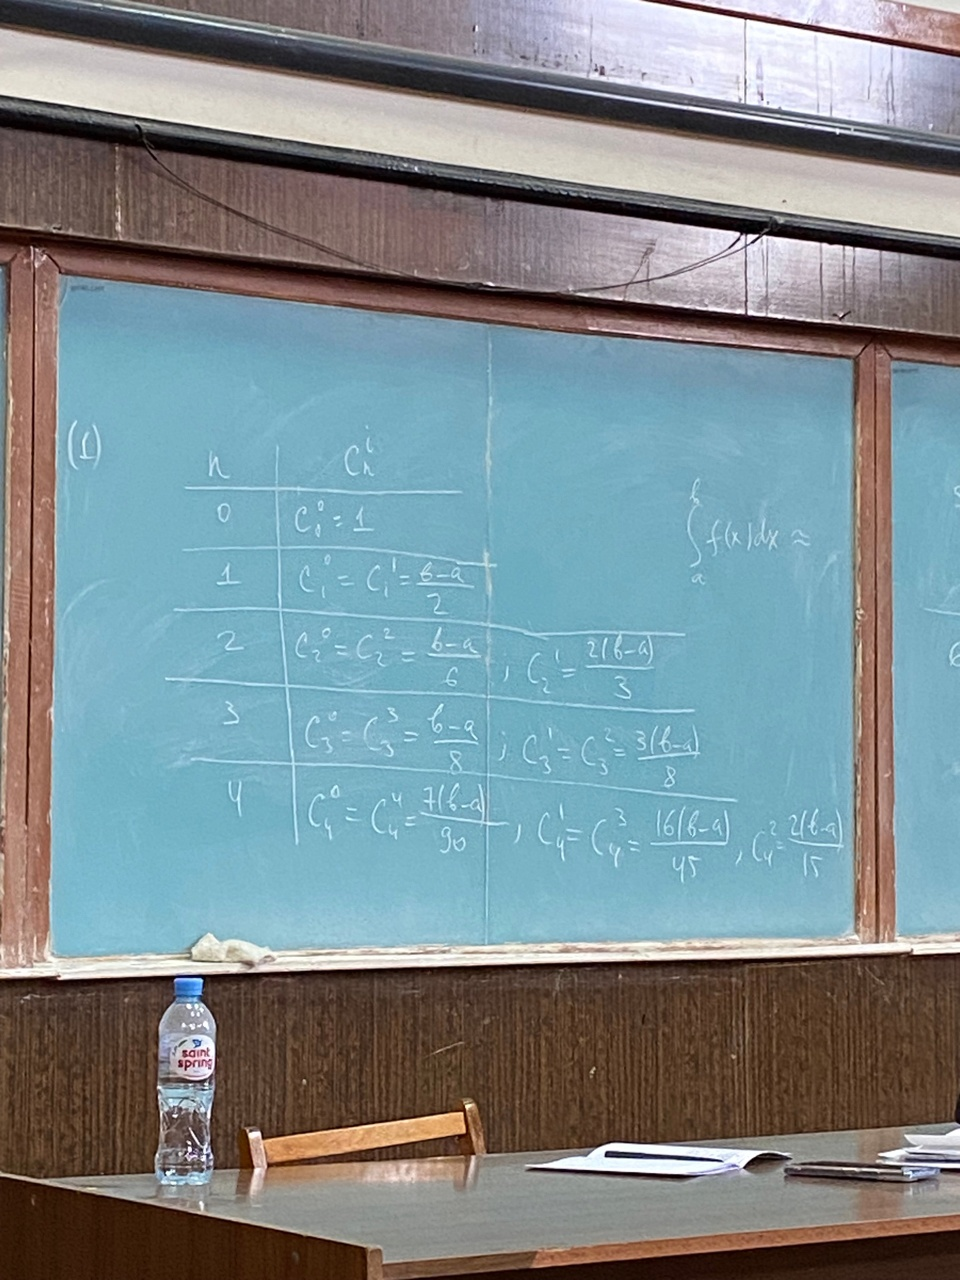 (1)
n | C_n^i
0 | C_0^0 = 1
1 | C_1^0 = C_1^1 = (в-a)/2
2 | C_2^0 = C_2^2 = (в-a)/6 ; C_2^1 = 2(в-a)/3
3 | C_3^0 = C_3^3 = (в-a)/8 ; C_3^1 = C_3^2 = 3(в-a)/8
4 | C_4^0 = C_4^4 = 7(в-a)/90 , C_4^1 = C_4^3 = 16(в-a)/45 , C_4^2 = 2(в-a)/15
∫_a^b f(x)dx ≈
saint
spring